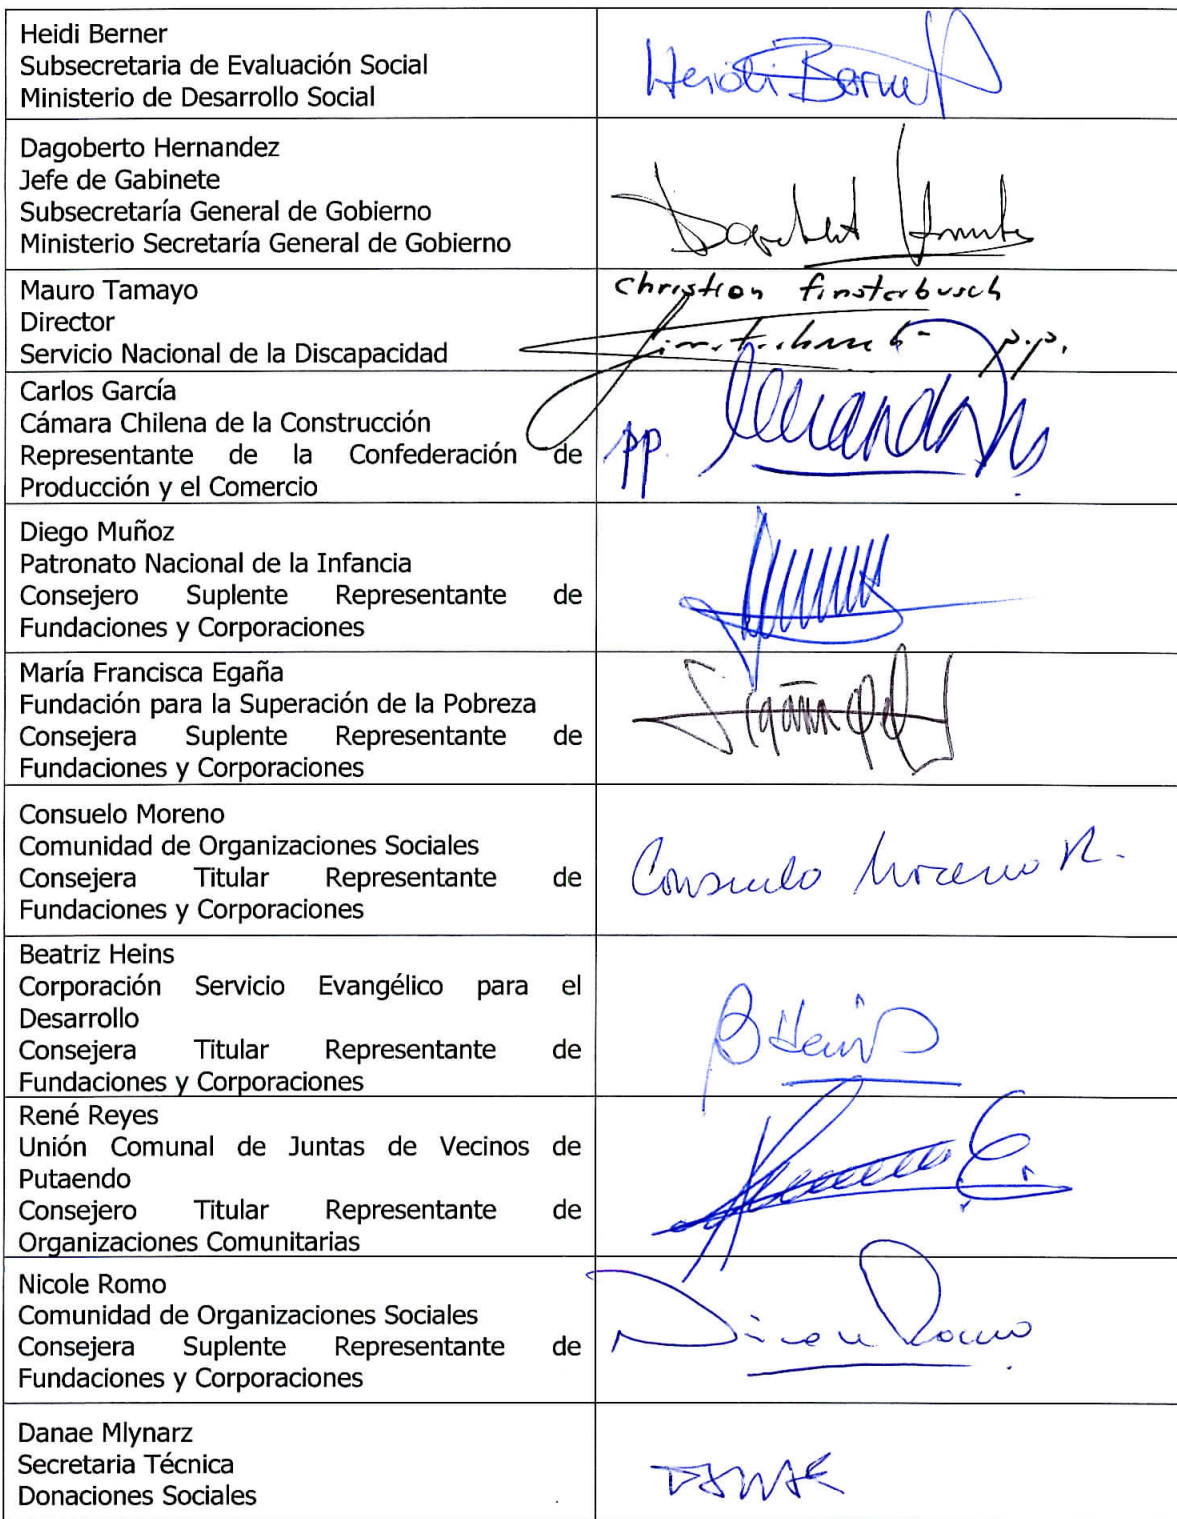 Heidi Berner
Subsecretaria de Evaluación Social
Ministerio de Desarrollo Social
Heidi Berner
Dagoberto Hernandez
Jefe de Gabinete
Subsecretaría General de Gobierno
Ministerio Secretaría General de Gobierno
Mauro Tamayo
Director
Servicio Nacional de la Discapacidad
Christian finsterbusch
p.p.
Carlos García
Cámara Chilena de la Construcción
Representante de la Confederación de
Producción y el Comercio
pp.
Diego Muñoz
Patronato Nacional de la Infancia
Consejero Suplente Representante de
Fundaciones y Corporaciones
María Francisca Egaña
Fundación para la Superación de la Pobreza
Consejera Suplente Representante de
Fundaciones y Corporaciones
Consuelo Moreno
Comunidad de Organizaciones Sociales
Consejera Titular Representante de
Fundaciones y Corporaciones
Consuelo Moreno R.
Beatriz Heins
Corporación Servicio Evangélico para el
Desarrollo
Consejera Titular Representante de
Fundaciones y Corporaciones
B Heins
René Reyes
Unión Comunal de Juntas de Vecinos de
Putaendo
Consejero Titular Representante de
Organizaciones Comunitarias
Nicole Romo
Comunidad de Organizaciones Sociales
Consejera Suplente Representante de
Fundaciones y Corporaciones
Nicole Romo
Danae Mlynarz
Secretaria Técnica
Donaciones Sociales
DANAE